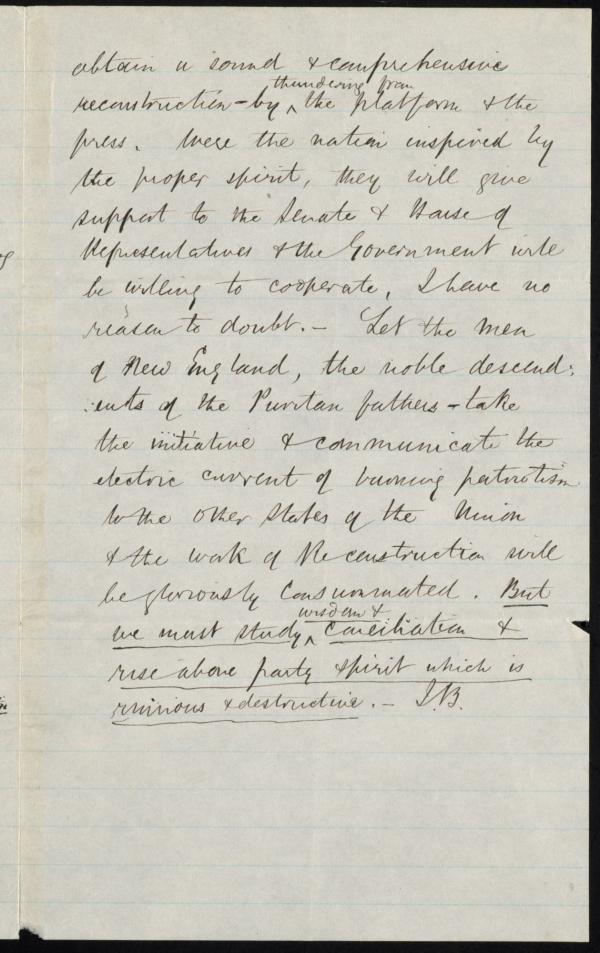 obtain a sound & comprehensive
thundering from
reconstruction - by ^ the platform & the
press. Were the nation inspired by
the proper spirit, they will give
support to the Senate & House of
Representatives & the Government will
be willing to cooperate, I have no
reason to doubt. - Let the men
of New England, the noble descend:
:ents of the Puritan fathers - take
the initiative & communicate the
electric current of burning patriotism
to the other States of the Union
& the work of Reconstruction will
be gloriously consummated. But
wisdom &
we must study ^ conciliation &
rise above party spirit which is
ruinous & destructive. - I.B.